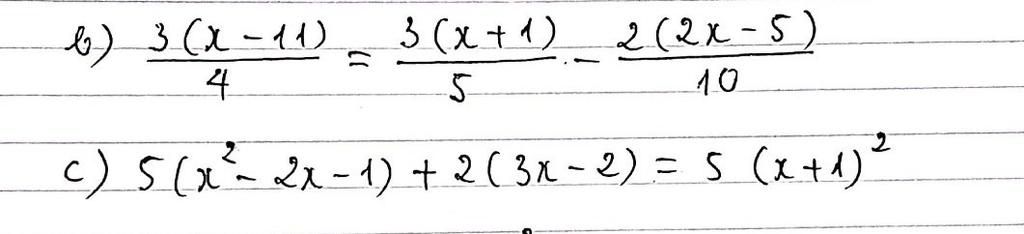 b) 3(x-11)/4 = 3(x+1)/5 - 2(2x-5)/10
c) 5(x²-2x-1)+2(3x-2) = 5 (x+1)²